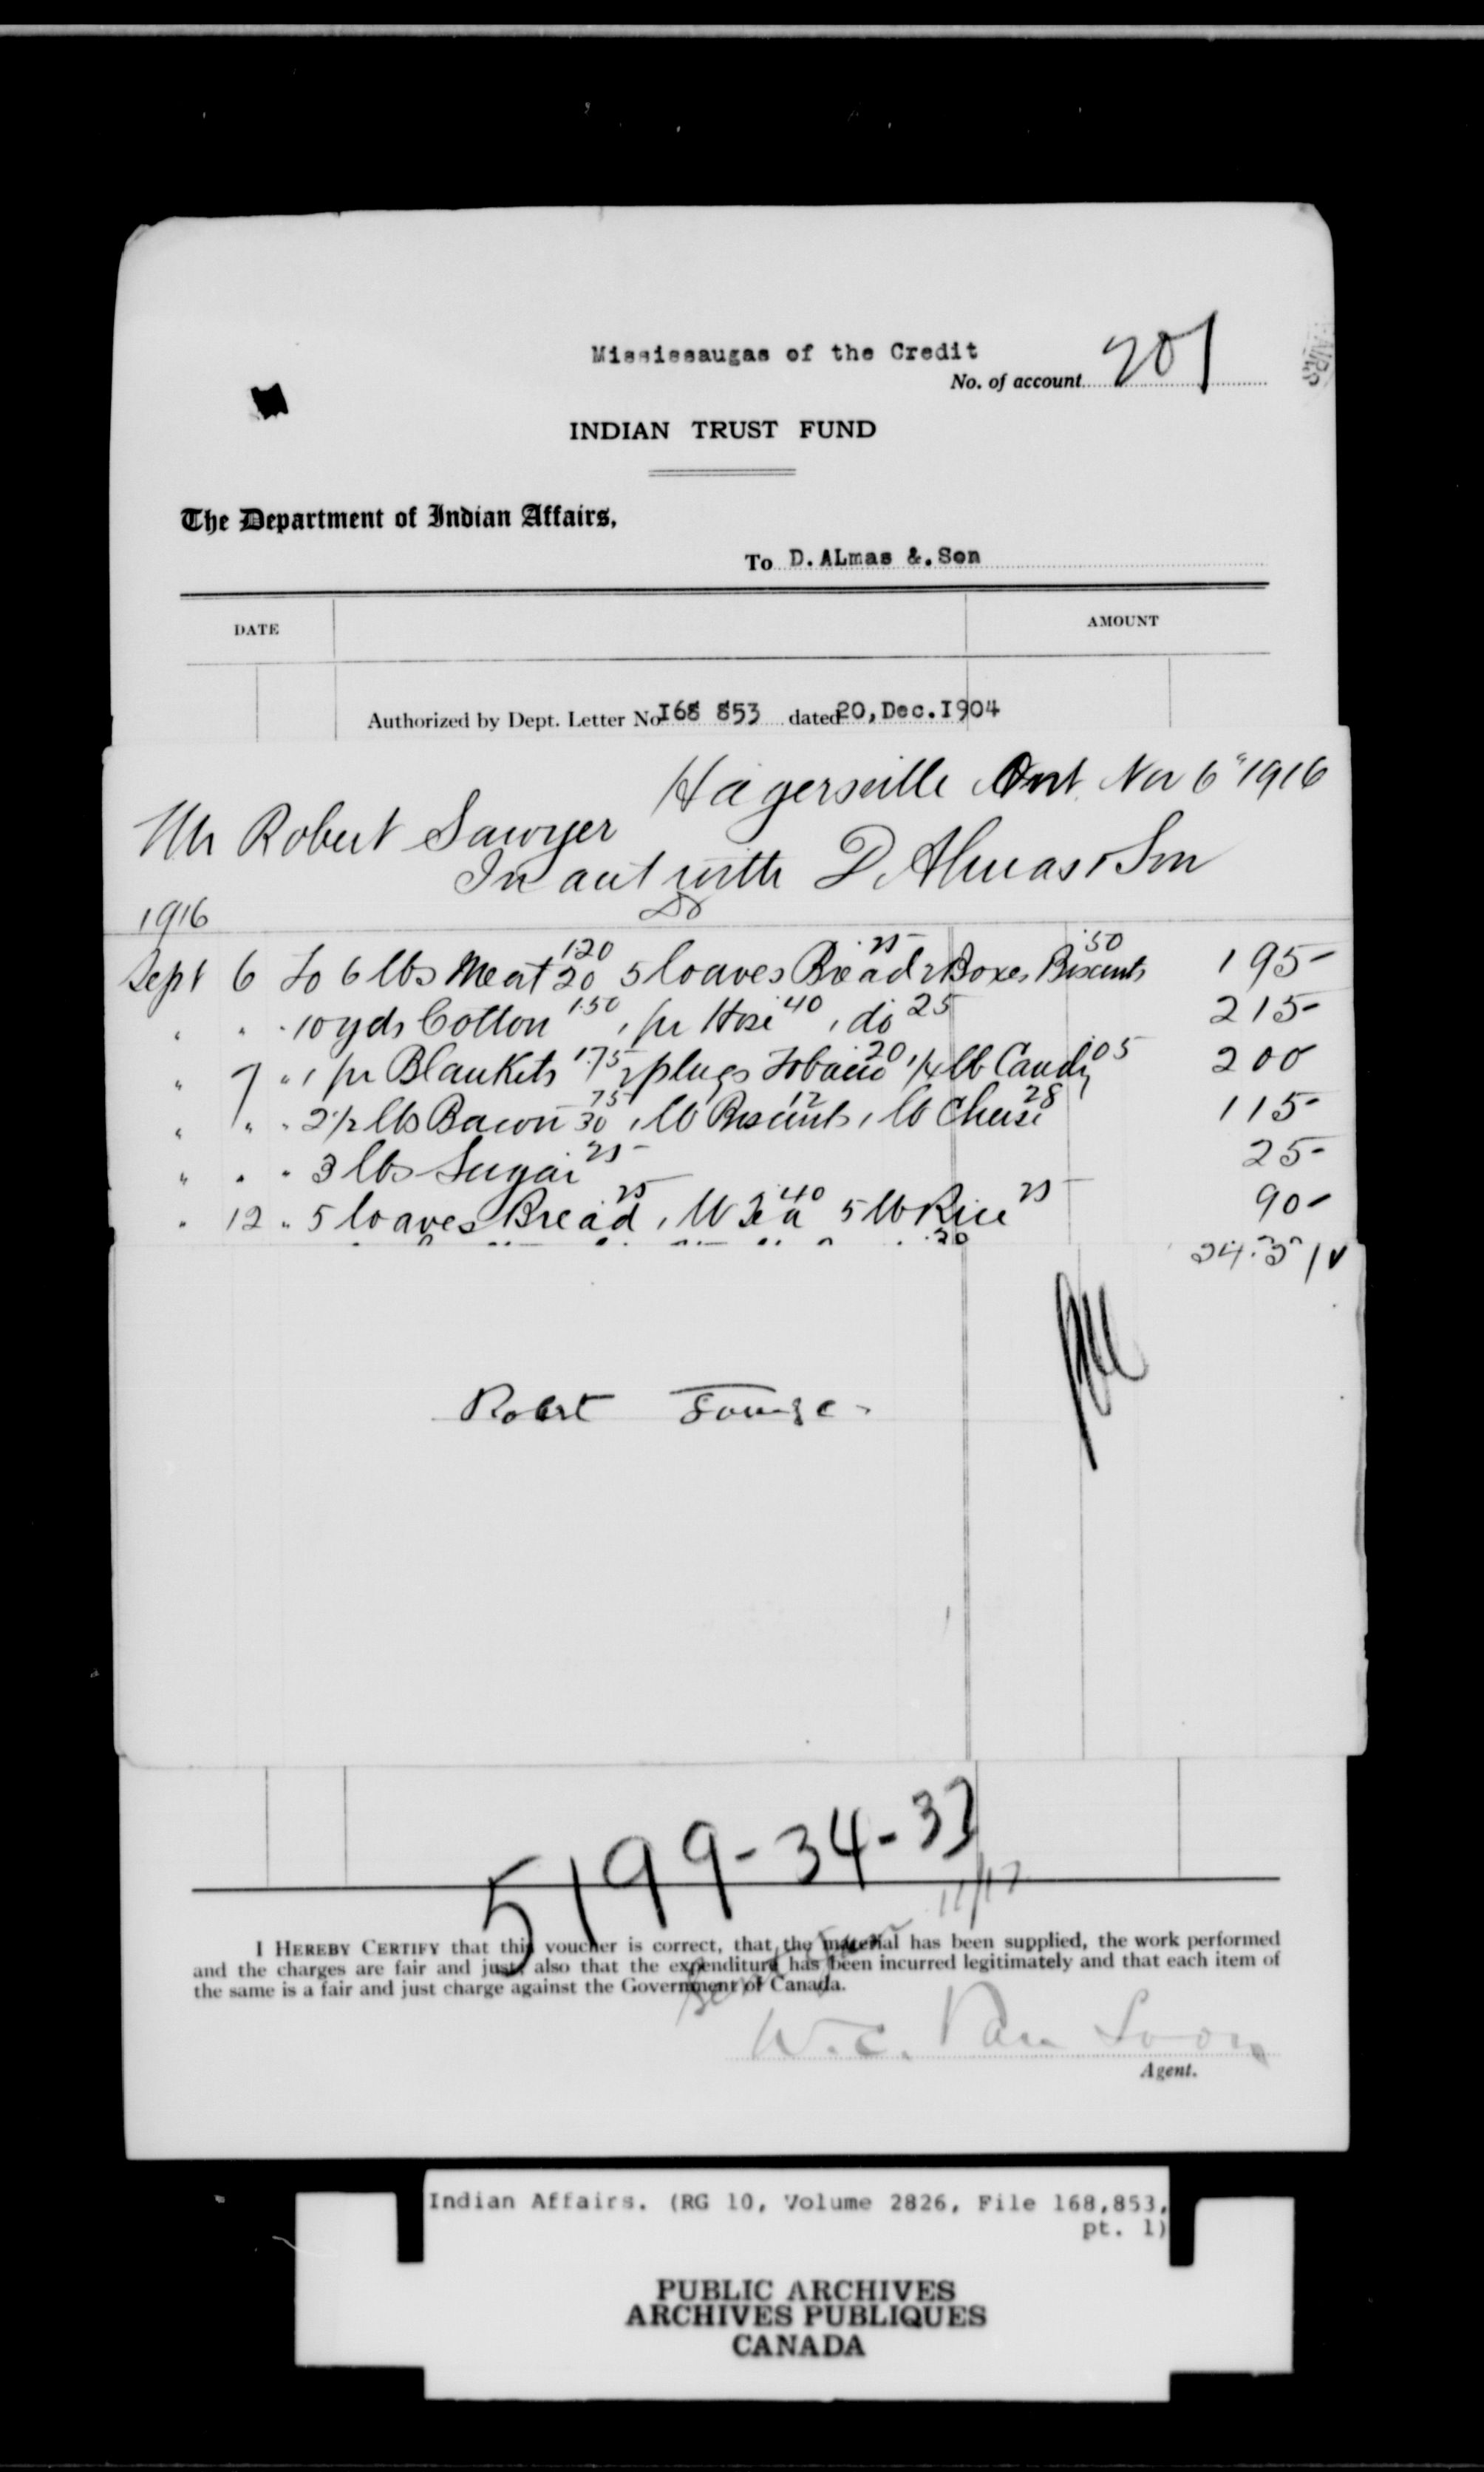 Mississaugas of the Credit
No. of account 201
INDIAN TRUST FUND
The Department of Indian Affairs,
To D. ALmas &. Son
DATE AMOUNT
Authorized by Dept. Letter No I68 853 dated 20, Dec. I904
Hagersville Ont. Nov 6" 1916
Mr Robert Sawyer
In acct with D. Almas & Son
1916 Dr
Sept 6 To 6 lbs Meat 20 1.20 5 loaves Bread .25 2 Boxes Biscuits .50 1 95
" " " 10 yds Cotton 1.50 1 pr Hose 40 1 do 25 2 15
" 7 " 1 pr Blankets 1.75 2 plugs Tobacco .20 1/4 lb Candy 05 2 00
" " " 2 1/2 lbs Bacon 30 75 1 lb Biscuits 12 1 lb Cheese 28 1 15
" " " 3 lbs Sugar 25 25
" 12 " 5 loaves Bread 25 1 lb Tea 40 5 lb Rice 25 90
.20
Robert
5199-34-33
11/17
I HEREBY CERTIFY that this voucher is correct, that the material has been supplied, the work performed
and the charges are fair and just, also that the expenditure has been incurred legitimately and that each item of
the same is a fair and just charge against the Government of Canada.
W. C. Van Loon
Agent.
Indian Affairs. (RG 10, Volume 2826, File 168,853,
pt. 1)
PUBLIC ARCHIVES
ARCHIVES PUBLIQUES
CANADA